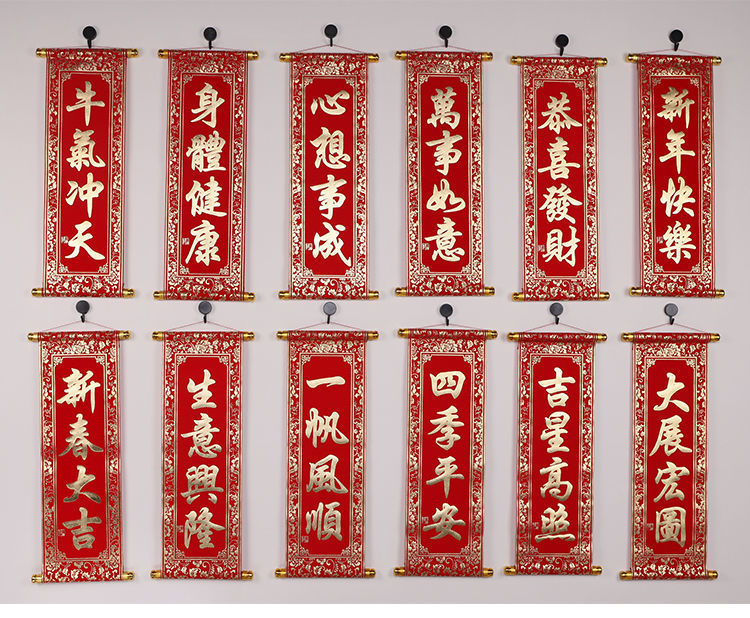 牛氣冲天
身體健康
心想事成
萬事如意
恭喜發財
新年快樂
新春大吉
生意興隆
一帆風順
四季平安
吉星高照
大展宏圖